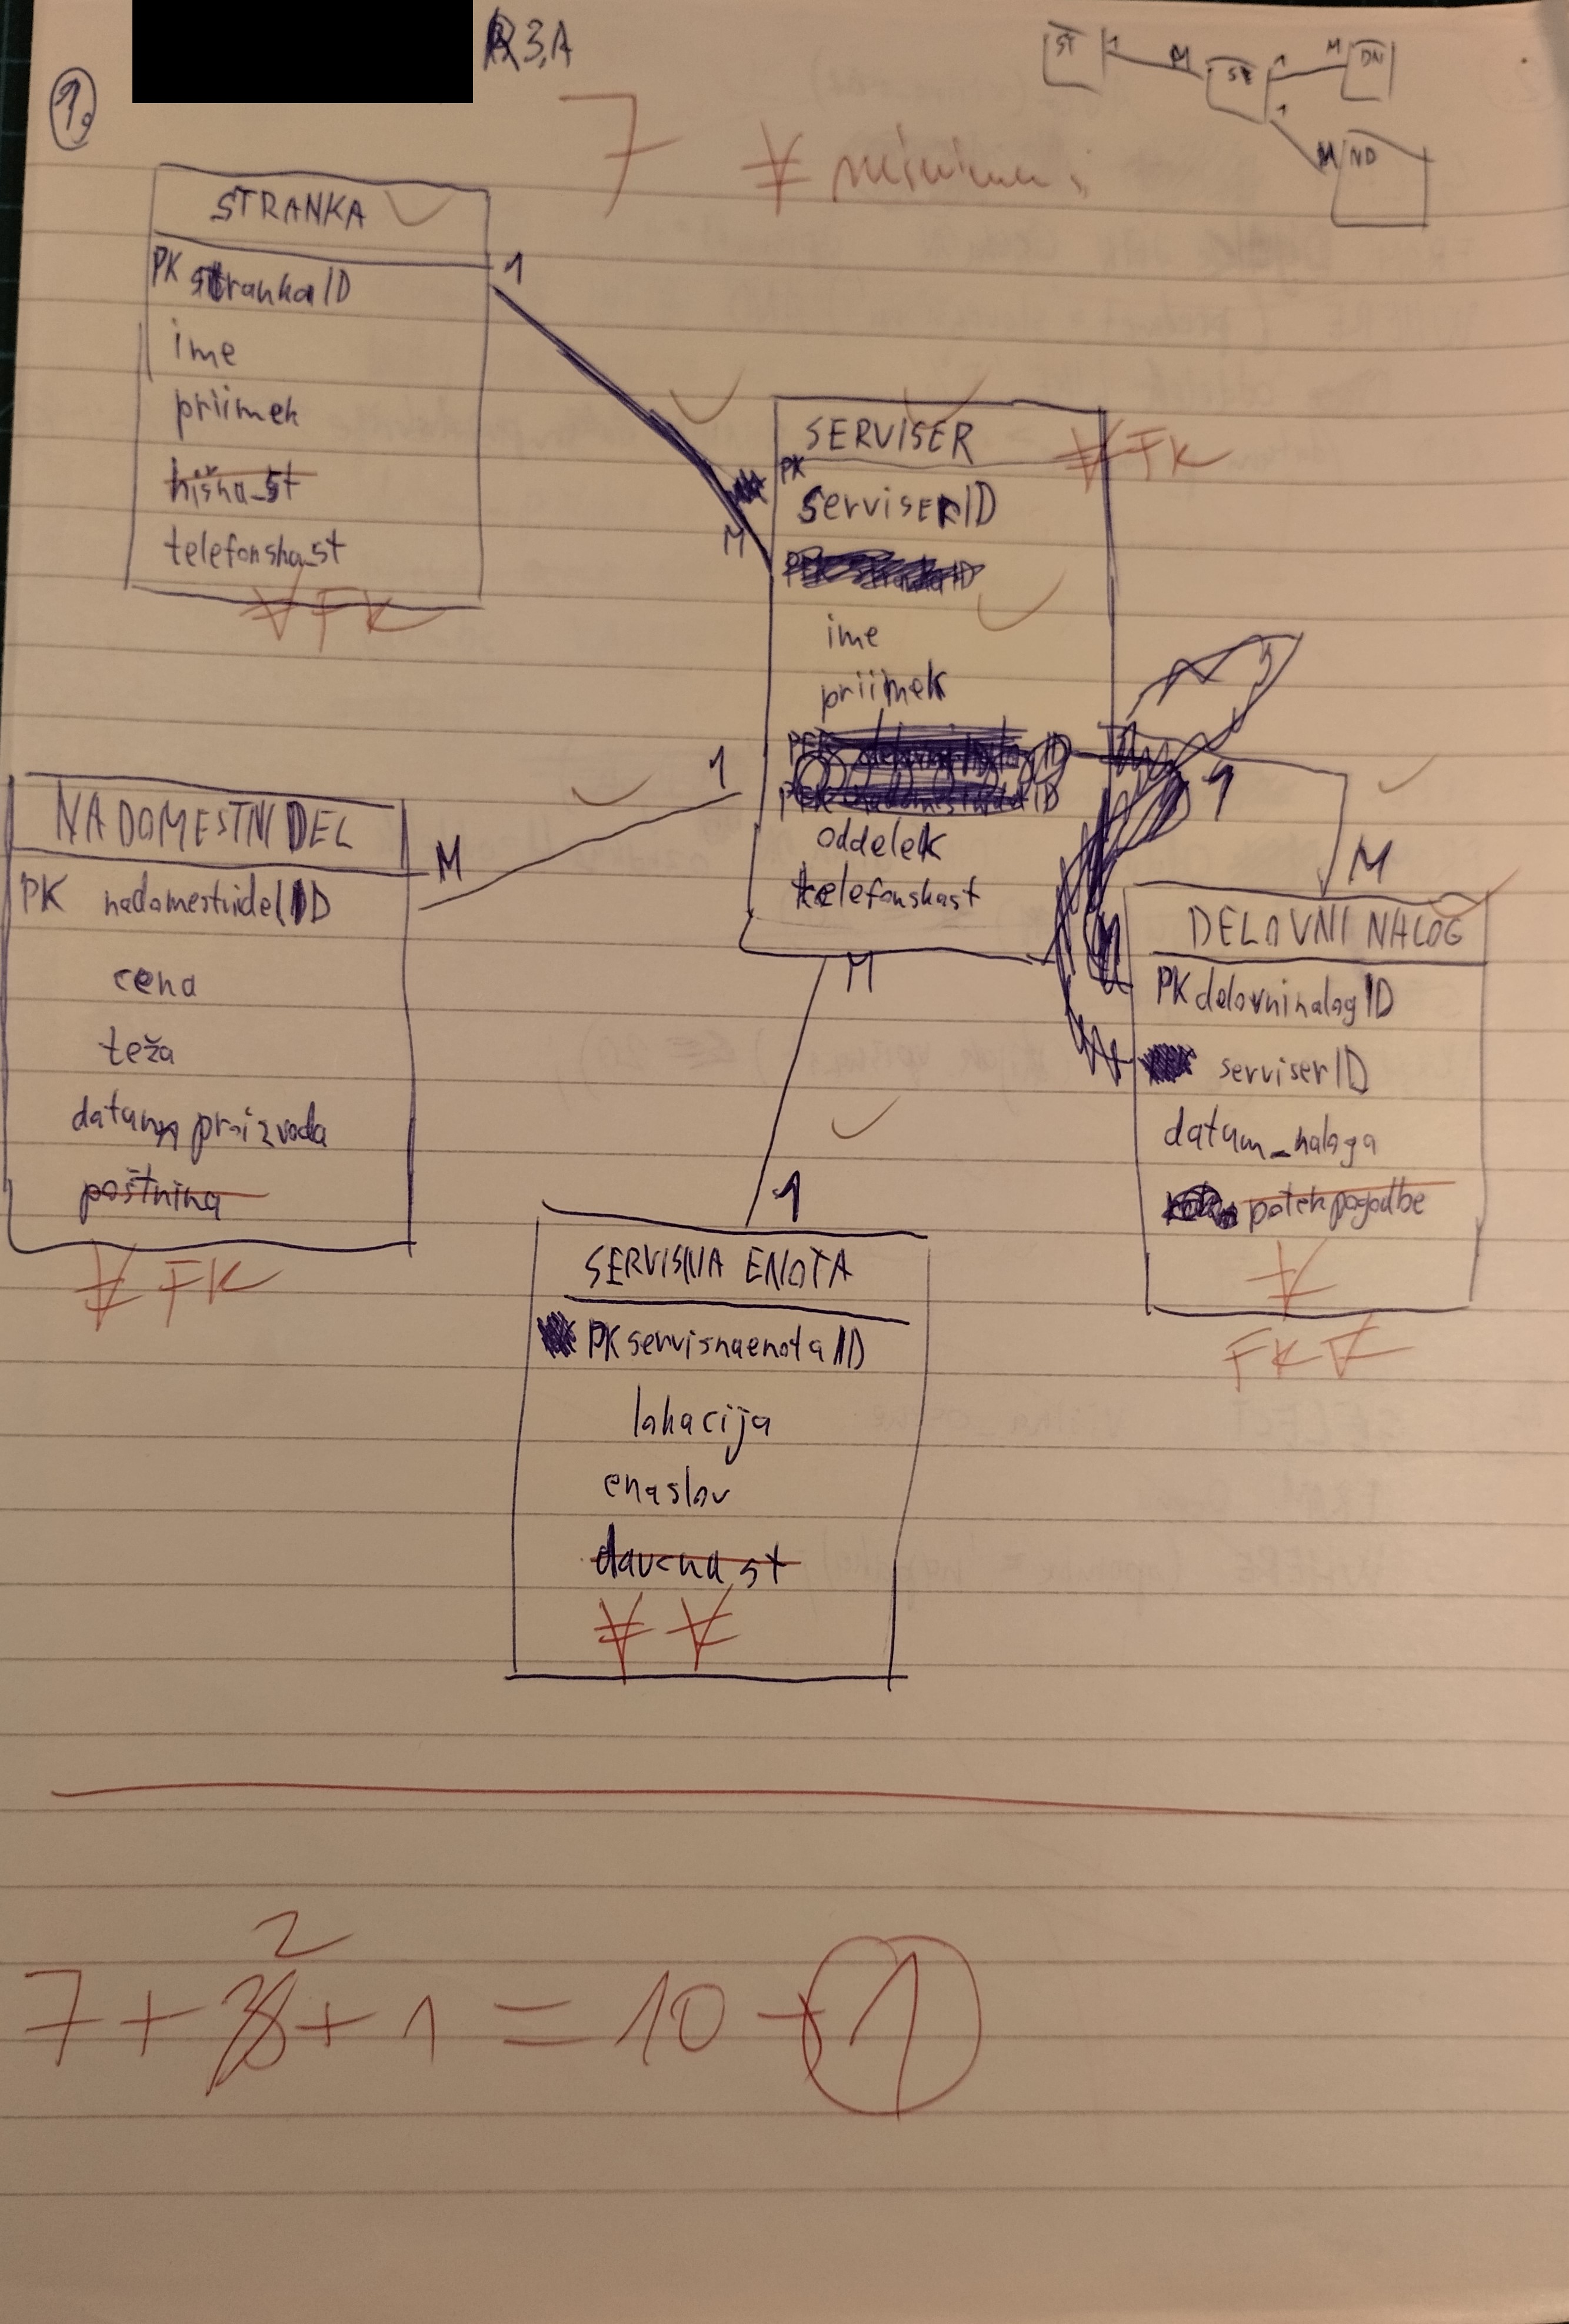 3.A
1.
ST 1 M SE 1 M DN
1
M ND
7
STRANKA
PK strankaID
ime
priimek
hišna_št
telefonska_št
FK
1
M
SERVISER
FK
PK
serviserID
ime
priimek
oddelek
telefonskašt
1
M
1
M
M
1
NADOMESTNI DEL
PK nadomestnidelID
cena
teža
datum proizvoda
poštnina
FK
DELOVNI NALOG
PK delovninalogID
serviserID
datum_naloga
potek pogodbe
FK
SERVISNA ENOTA
PK servisnaenotaID
lokacija
enaslov
davčna_št
2
7 + 3 + 1 = 10 → 1